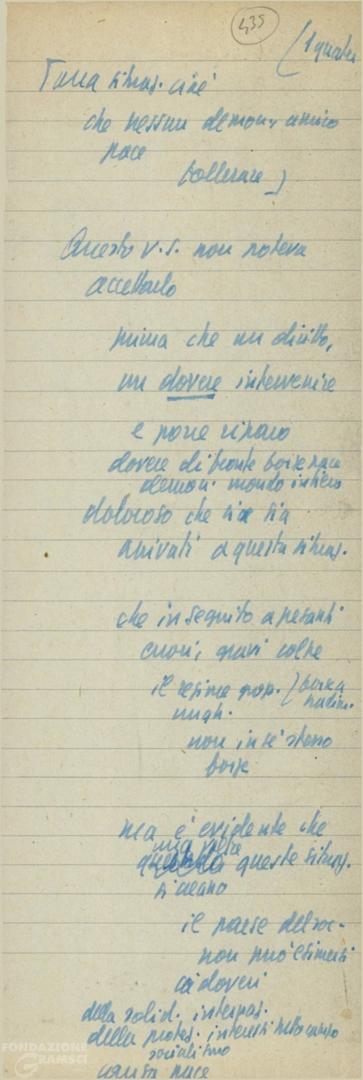 435
(1 quater
una situaz. cioè
che nessun democr. amico
pace
tollerare)
Questo v.s. non poteva
accettarlo
prima che un diritto,
un dovere intervenire
e porre riparo
dovere di fronte forze pace
democr. mondo intiero
doloroso che si sia
arrivati a questa situaz.
che in seguito a pesanti
errori, gravi colpe
il regime pop.
ungh.
non in sé stesso
forze
ma è evidente che
una volta
queste situaz.
si creano
il paese del soc.
non può esimersi
dai doveri
della solid. internaz.
della protez. interessi
socialismo
causa pace
FONDAZIONE
GRAMSCI